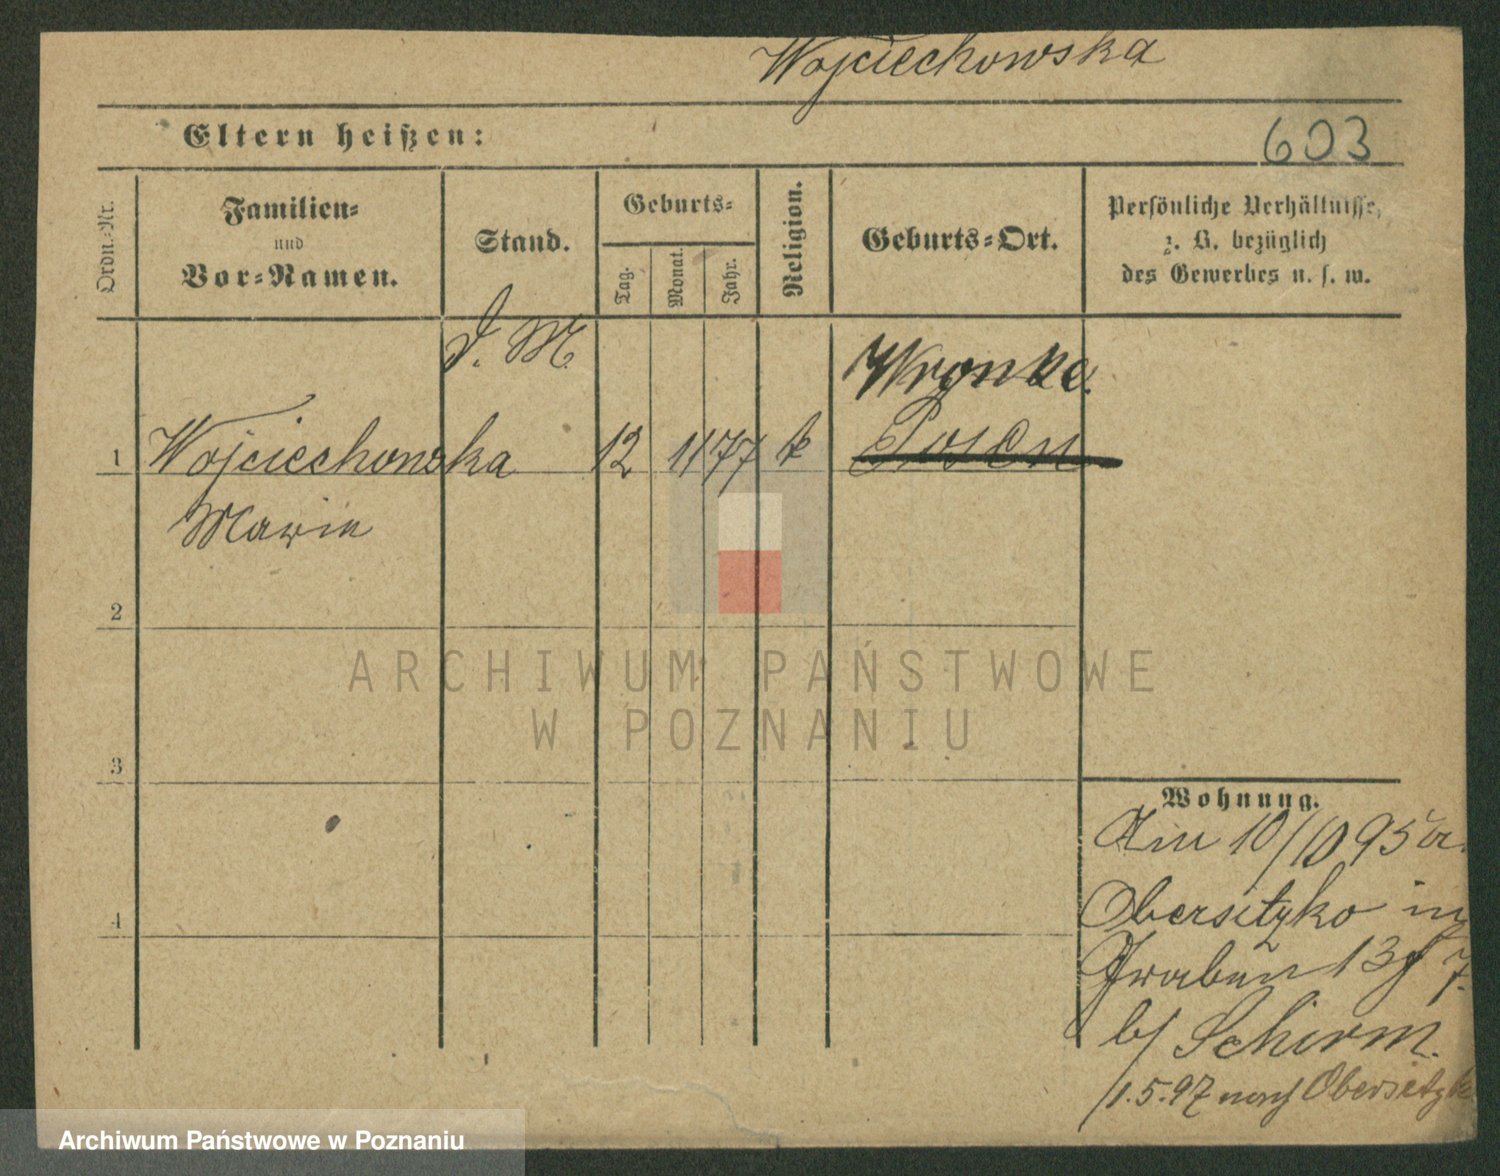 Wojciechowska
Eltern heißen:
603
Ordn.-Nr.
Familien-
und
Vor-Namen.
Stand.
Geburts-
Tag.
Monat.
Jahr.
Religion.
Geburts-Ort.
Persönliche Verhältnisse,
z. B. bezüglich
des Gewerbes u. s. w.
D. M.
Wronke.
1 Wojciechowska 12 11 77 k Posen
Marie
2
3
4
Wohnung.
Am 10/10 95 a.
Obersitzko in
Graben 13 7.
b/ Schirm.
1.5.97 nach Obersitzk
ARCHIWUM PAŃSTWOWE
W POZNANIU
Archiwum Państwowe w Poznaniu